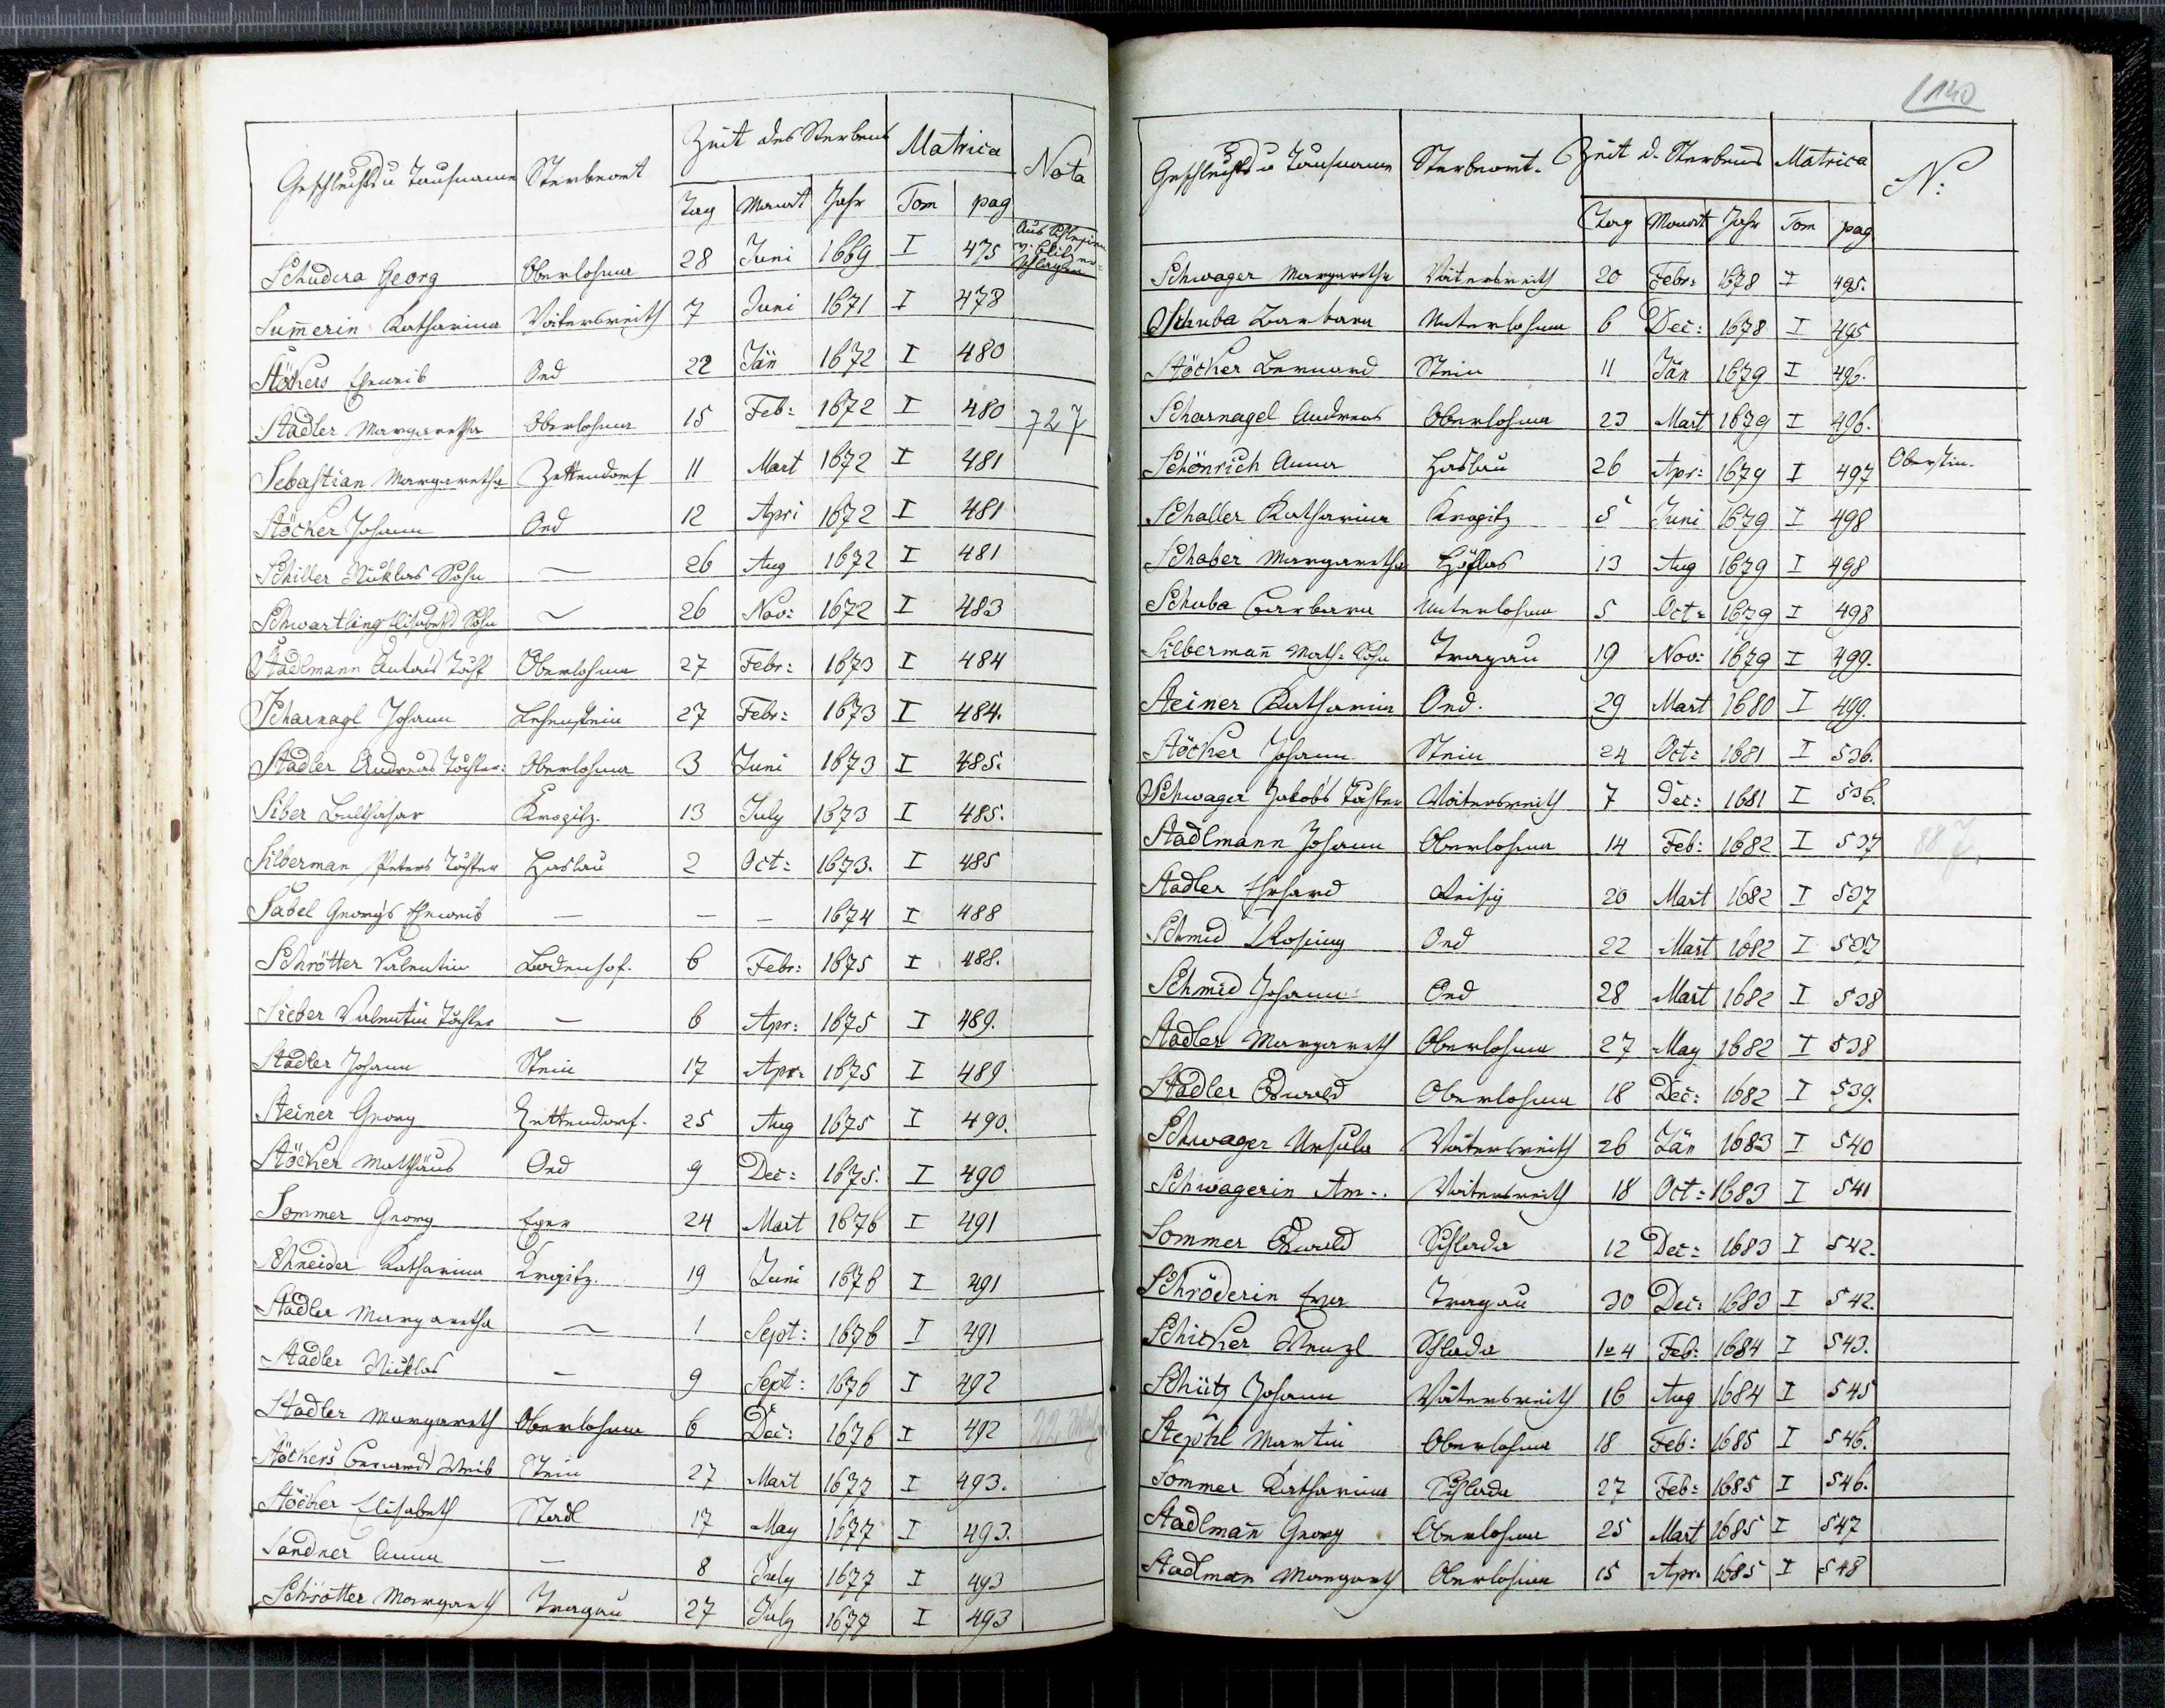 Geschlechts u Taufname Sterbeort Zeit des Sterbens Matrica Nota
Tag Monat Jahr Tom pag
Schudera Georg Oberlohma 28 Juni 1669 I 475 Aus Schlesien v. Blitz er=schlagen
Sum̅erin Katharina Voitersreith 7 Juni 1671 I 478
Stöckers Eheweib Oed 22 Jän 1672 I 480
Stadler Margaretha Oberlohma 15 Feb: 1672 I 480 727
Sebastian Margaretha Zettendorf 11 Mart 1672 I 481
Stöcker Johann Oed 12 Apri 1672 I 481
Schiller Niklas Sohn — 26 Aug 1672 I 481
Schwartling Elisabeth Sohn — 26 Nov: 1672 I 483
Stadlmann Antons Toch Oberlohma 27 Febr: 1673 I 484
Scharnagl Johann Lehenstein 27 Febr: 1673 I 484.
Stadler Andreas Tochter: Oberlohma 3 Juni 1673 I 485.
Siber Balthasar Krogitz. 13 July 1673 I 485.
Silberman Peters Tochter Haslau 2 Oct: 1673. I 485
Sabel Georgs Eheweib — — — 1674 I 488
Schrötter Valentin Bodenhof. 6 Febr: 1675 I 488.
Sieber Valentin Tochter — 6 Apr: 1675 I 489.
Stadler Johann Stein 17 Apr: 1675 I 489
Steiner Georg Zettendorf. 25 Aug 1675 I 490.
Stöcker Mathäus Oed 9 Dec: 1675. I 490
Sommer Georg Eger 24 Mart 1676 I 491
Schneider Katharina Krogitz. 19 Juni 1676 I 491
Stadler Margaretha — 1 Sept: 1676 I 491
Stadler Niklas — 9 Sept: 1676 I 492
Stadler Margareth Oberlohma 6 Dec: 1676 I 492 22
Stöckers Bernard Weib Stein 27 Mart 1677 I 493.
Stöcker Elisabeth Stadl 17 May 1677 I 493.
Sandner Anna — 8 July 1677 I 493
Schrötter Margareth Tragau 27 July 1677 I 493
140
Geschlechts u Taufname Sterbeort. Zeit d. Sterbens Matrica N:
Tag Monat Jahr Tom pag
Schwager Margaretha Voitersreith 20 Febr: 1678 I 495.
Schuba Barbara Unterlohma 6 Dec: 1678 I 495
Stöcker Bernard Stein 11 Jän 1679 I 496.
Scharnagel Andreas Oberlohma 23 Mart 1679 I 496.
Schönrich Anna Haslau 26 Apr: 1679 I 497
Schaller Katharina Krogitz 5 Juni 1679 I 498
Schaber Margaretha Höflas 13 Aug 1679 I 498
Schuba Barbara Unterlohma 5 Oct: 1679 I 498
Silberman̅ Math: Sohn Tragau 19 Nov: 1679 I 499.
Steiner Katharina Oed. 29 Mart 1680 I 499.
Stöcker Johann Stein 24 Oct: 1681 I 536.
Schwager Jakobs Tochter Voitersreith 7 Dec: 1681 I 536.
Stadlmann Johann Oberlohma 14 Feb: 1682 I 537 887.
Stadler Erhard Reisig 20 Mart 1682 I 537
Schmid Rosina Oed 22 Mart 1682 I 537
Schmid Johann Oed 28 Mart 1682 I 538
Stadler Margareth Oberlohma 27 May 1682 I 538
Stadler Oswald Oberlohma 18 Dec: 1682 I 539.
Schwager Ursula Voitersreith 26 Jän 1683 I 540
Schwagerin Am.. Voitersreith 18 Oct: 1683 I 541
Sommer Oswald Schlada 12 Dec: 1683 I 542.
Schröderin Eva Tragau 30 Dec: 1683 I 542.
Schicker Wenzl Schlada 4 Feb: 1684 I 543.
Schütz Johann Voitersreith 16 Aug 1684 I 545
Stephl Martin Oberlohma 18 Feb: 1685 I 546.
Sommer Katharina Schlada 27 Feb: 1685 I 546.
Stadlman̅ Georg Oberlohma 25 Mart 1685 I 547
Stadlman Margareth Oberlohma 15 Apr: 1685 I 548